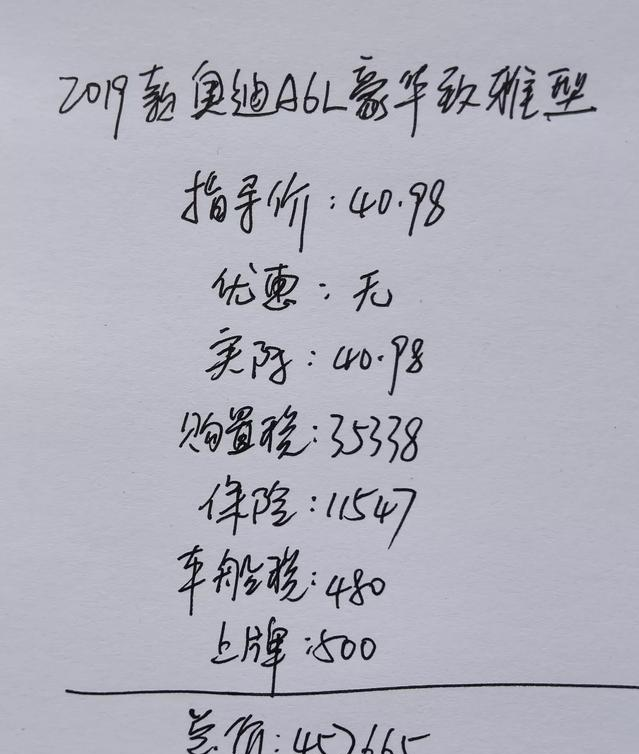 2019款奥迪A6L豪华致雅型
指导价:40.98
优惠:无
实际:40.98
购置税:35338
保险:11547
车船税:480
上牌:500
总价:457665